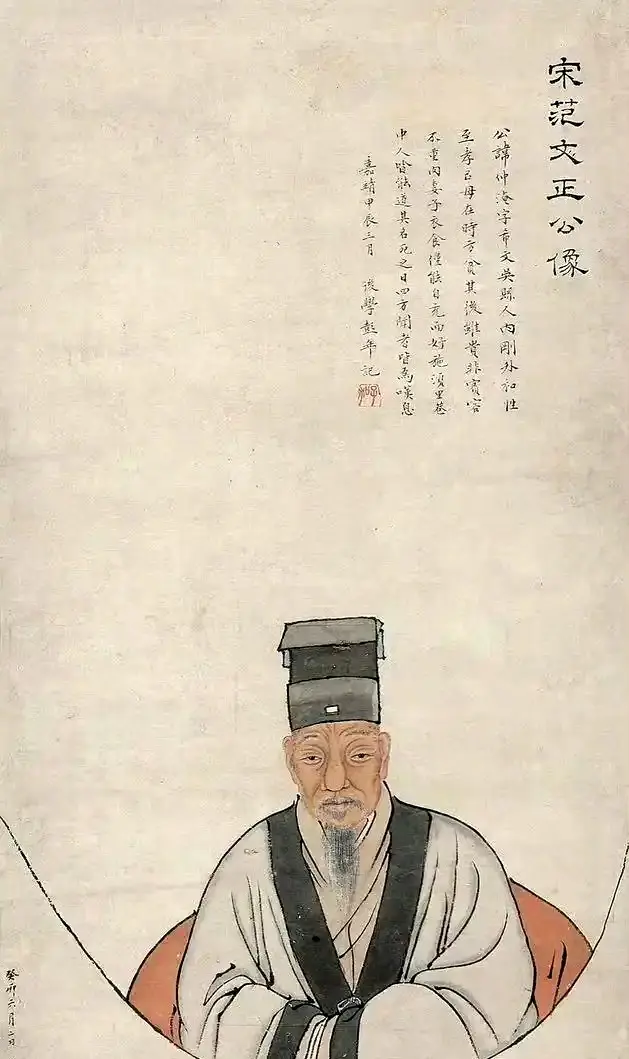 宋范文正公像
公諱仲淹字希文吳縣人內剛外和性
至孝㠯母在時方貧其後雖貴非賓客
不重肉妻子衣食僅能自充而好施里巷
中人皆能道其名死之日四方聞者皆為嘆息
嘉靖甲辰三月 後學彭年記
癸卯六月二日